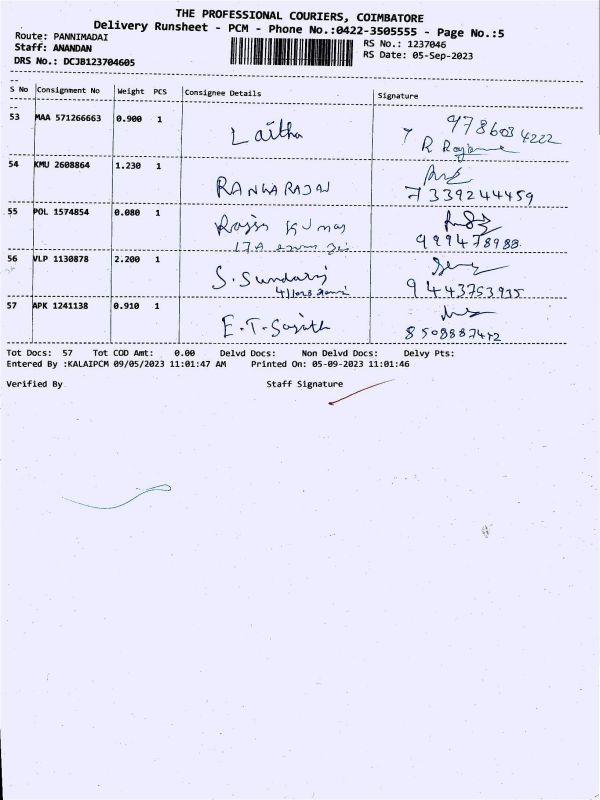 THE PROFESSIONAL COURIERS, COIMBATORE
Delivery Runsheet - PCM - Phone No.:0422-3505555 - Page No.:5
Route: PANNIMADAI
RS No.: 1237046
Staff: ANANDAN
RS Date: 05-Sep-2023
DRS No.: DCJB123704605
S No Consignment No Weight PCS Consignee Details Signature
53 MAA 571266663 0.900 1
Lalitha
9786034222
54 KMU 2608864 1.230 1
RANGARAJAN
7339244459
55 POL 1574854 0.080 1
Kumar
17A
56 VLP 1130878 2.200 1
S. Sundari
9443753935
57 APK 1241138 0.910 1
E.T.
8508887412
Tot Docs: 57 Tot COD Amt: 0.00 Delvd Docs: Non Delvd Docs: Delvy Pts:
Entered By :KALAIPCM 09/05/2023 11:01:47 AM Printed On: 05-09-2023 11:01:46
Verified By Staff Signature